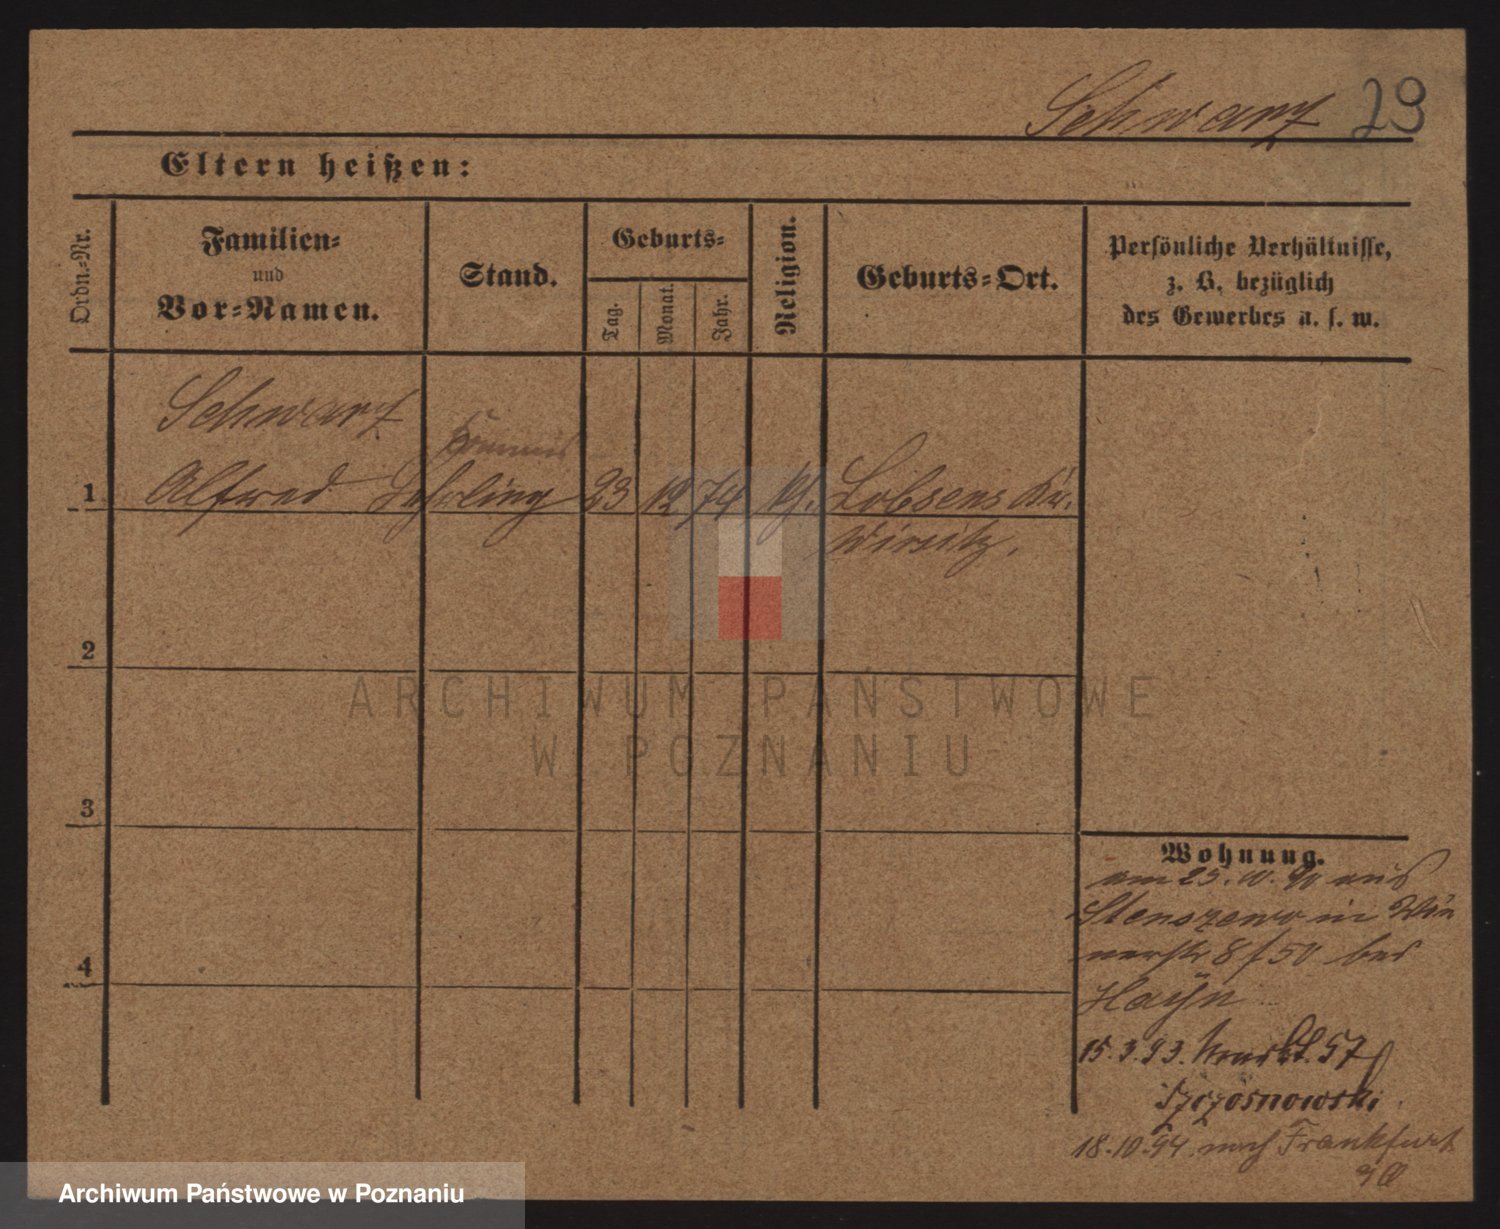 Schwarz 29
Eltern heißen:
Ordn.-Nr.
Familien-
und
Vor-Namen.
Stand.
Geburts-
Tag.
Monat.
Jahr.
Religion.
Geburts-Ort.
Persönliche Verhältnisse,
z. B. bezüglich
des Gewerbes u. s. w.
Schwarz
Commis
1 Alfred Lehrling 23 12 74 Lobsens Kr.
Wirsitz.
2
3
4
Wohnung.
am 25.10.90 aus
Stenszewo in
8 / 50 bei
Hayn
15.3.93. 57
Szczosnowski
18.10.94. nach Frankfurt
a/O
ARCHIWUM PAŃSTWOWE
W POZNANIU
Archiwum Państwowe w Poznaniu